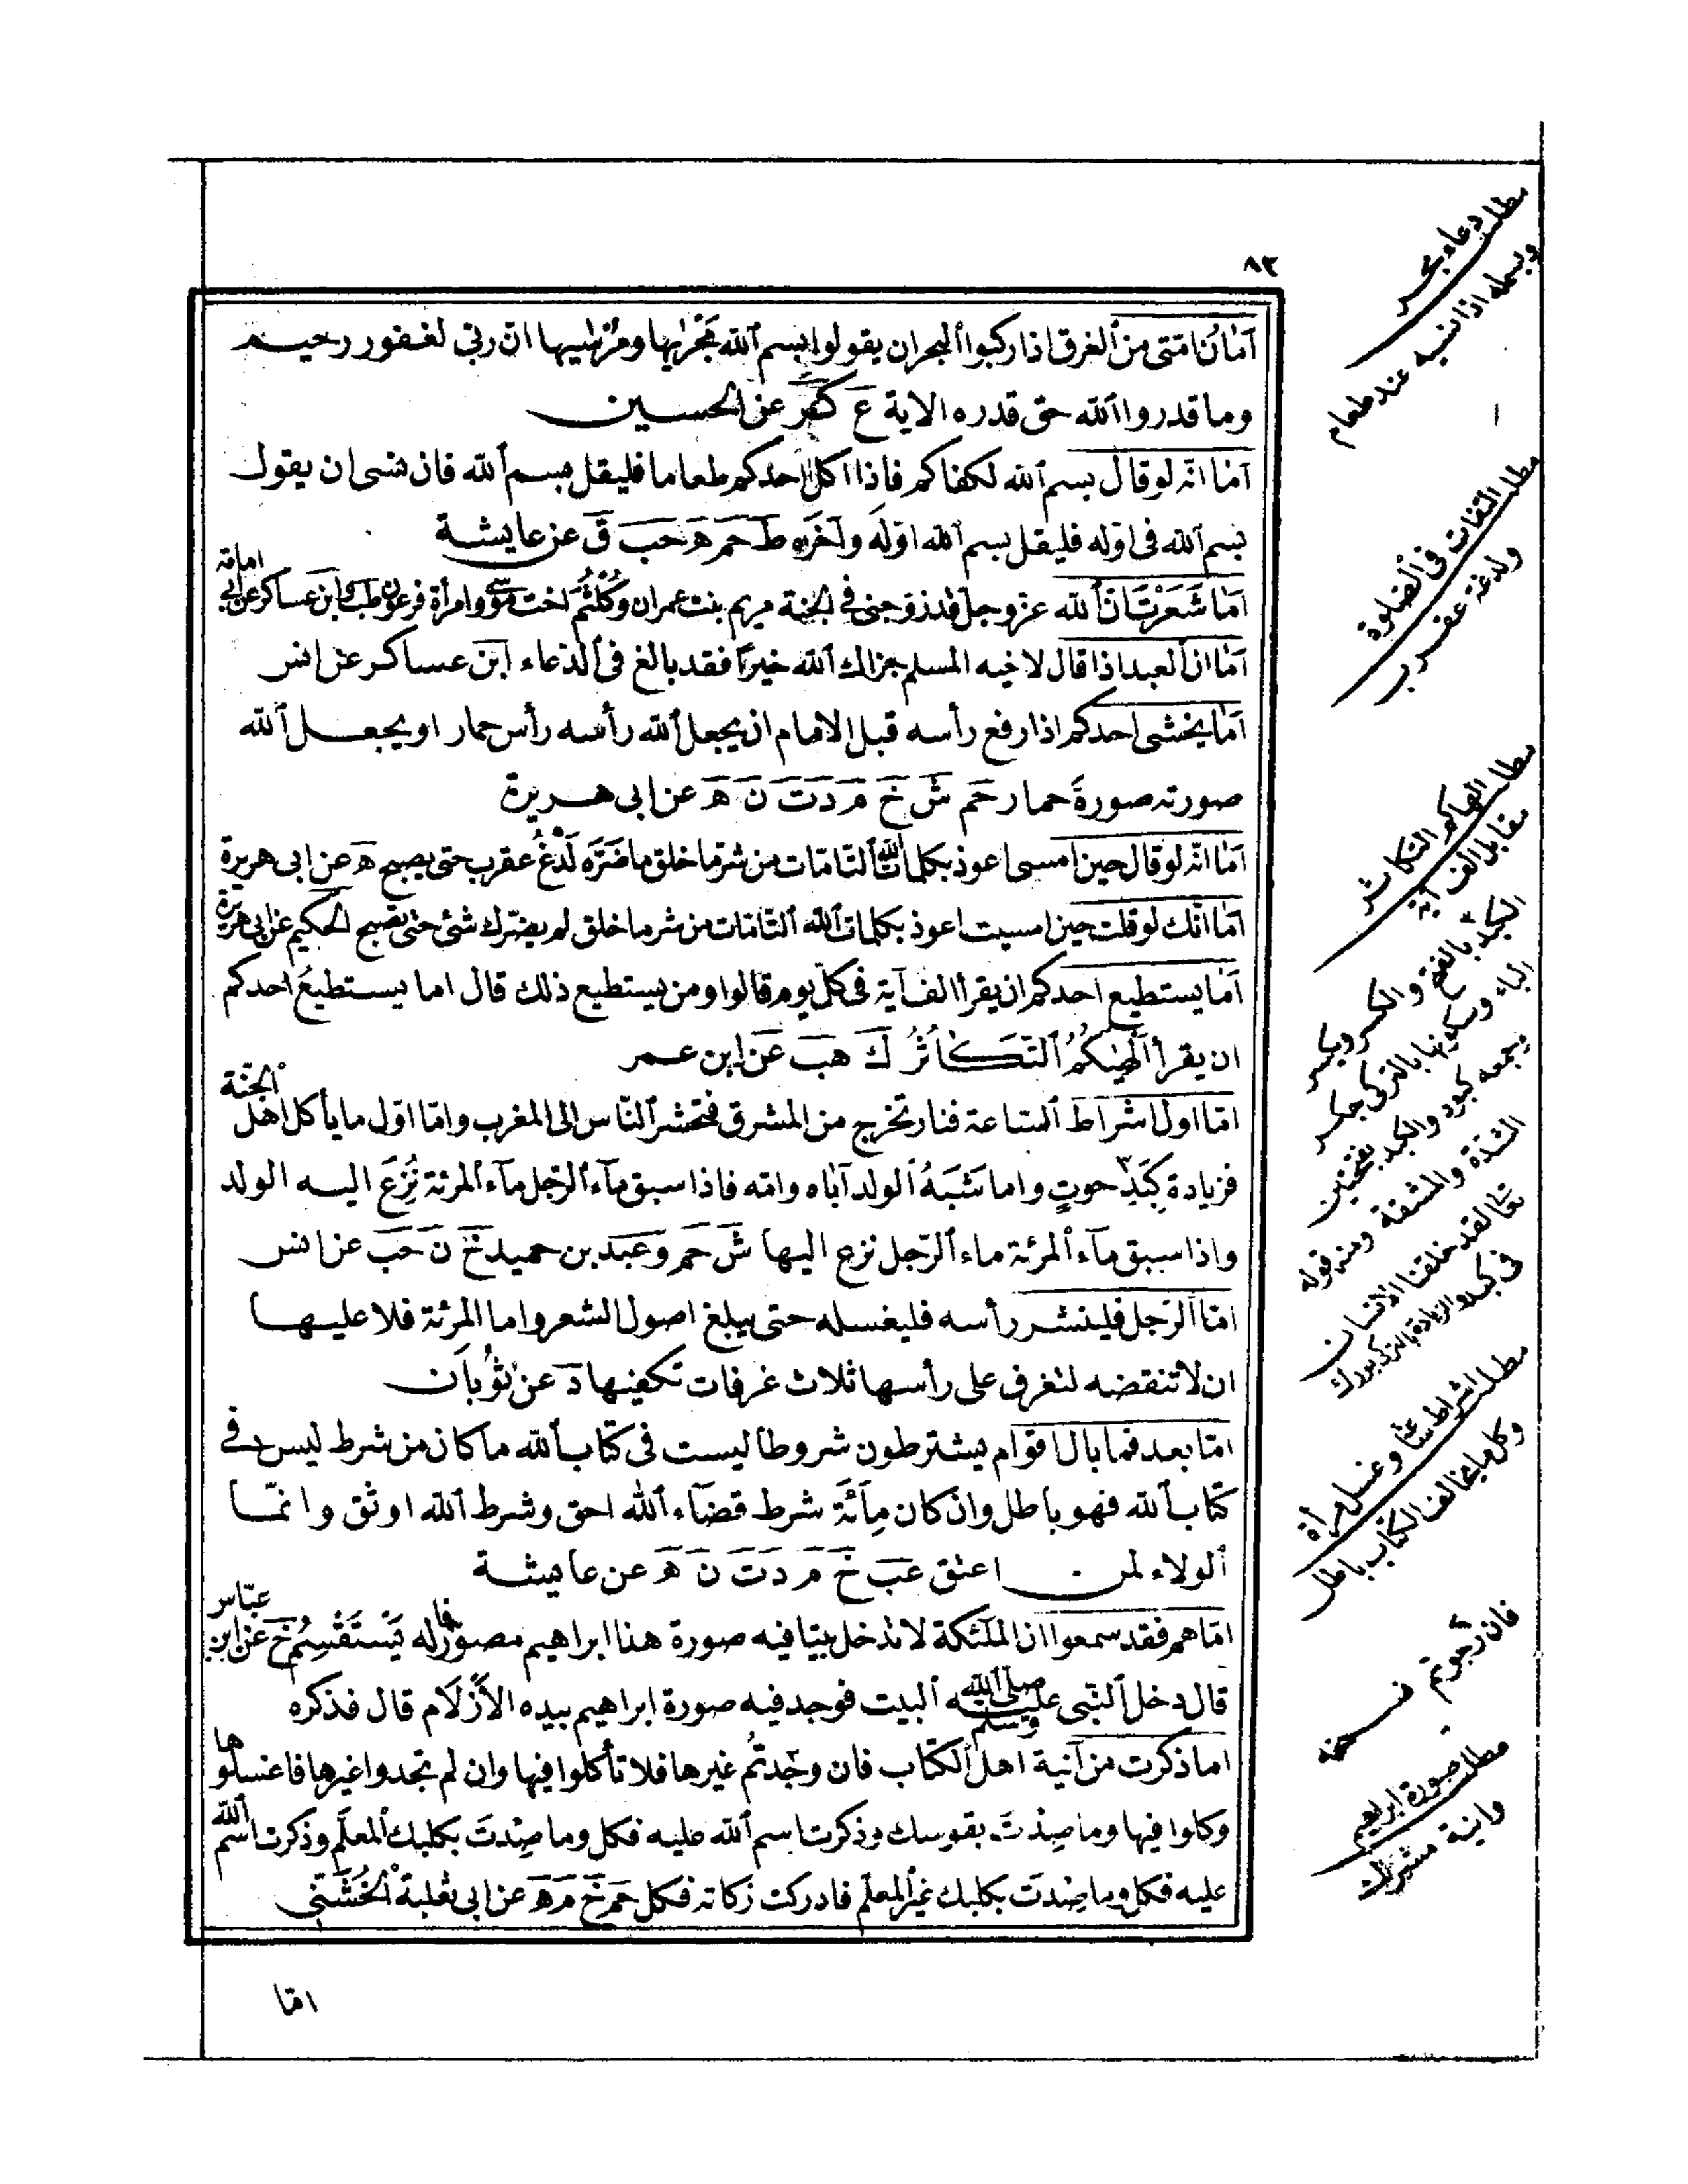 ٨٢
اَمَانُ اُمّتى من ٱلغرق اذا ركبوا ٱلبحر ان يقولوا بسم ٱلله مَجْرٰيها ومُرْسٰيها انّ ربّى لغفور رحيم
وما قدروا ٱلله حق قدره الاية عَ كَرَ عن الحسين
اَمَا انّه لو قال بسم ٱلله لكفاكم فاذا اكل احدكم طعاما فليقل بسم ٱلله فان نسى ان يقول
بسم ٱلله فى اوّله فليقل بسم ٱلله اوّلَه وآخرَه طَ حَم هَ حَبَ قَ عن عايشة
اَمَا شَعَرْتِ اَنّ ٱلله عزوجل قد زوّجنى فى الجنة مريم بنت عمران وكُلْثُمَ اخت موسى وامرأة فرعون طب وابن عساكر عن ابى امامة
اَمَا ان ٱلعبد اذا قال لاخيه المسلم جزاك ٱلله خيرًا فقد بالغ فى ٱلدّعاء ابن عساكر عن انس
اَمَا يخشى احدكم اذا رفع رأسه قبل الامام ان يجعل ٱلله رأسه رأس حمار او يجعل ٱلله
صورته صورةَ حمار حَم شَ خَ مَ دَ تَ نَ هَ عن ابى هريرة
اَمَا انّه لو قال حين امسى اعوذ بكلمات ٱلله ٱلتامّات من شرّ ما خلق ما ضَرّه لَدْغُ عقرب حتى يصبح هَ عن ابى هريرة
اَمَا انّك لو قلت حين امسيت اعوذ بكلمات ٱلله ٱلتّامّات من شر ما خلق لم يضرّك شئ حتى تصبح الحكيم عن ابى هريرة
اَمَا يستطيع احدكم ان يقرأ الف آية فى كلّ يوم قالوا ومن يستطيع ذلك قال اما يستطيعُ احدكم
ان يقرأ اَلْهٰيكُمُ ٱلتّكَاثُرُ كَ هبَ عن ابن عمر
امّا اول اشراط ٱلساعة فنار تخرج من المشرق فتحشر ٱلنّاس الى المغرب وامّا اوّل ما يأكل اهل الجنّة
فزيادة كَبِدِ حوتٍ واما شَبَهُ ٱلولد اَباه وامّه فاذا سبق مآء ٱلرّجل مآء ٱلمرئة نُزِعَ اليه الولد
واذا سبق مآء ٱلمرئة ماء ٱلرّجل نزع اليها شَ حَم وعَبَد بن حميد خَ نَ حَبَ عن انس
امّا ٱلرّجل فلينشر رأسه فليغسله حتى يبلغ اصول الشعر واما المرئة فلا عليها
ان لا تنقضه لتغرف على رأسها ثلاث غرفات تكفيها دَ عن ثَوْبَان
امّا بعد فما بال اقوام يشترطون شروطا ليست فى كتاب ٱلله ما كان من شرط ليس فى
كتاب ٱلله فهو باطل وان كان مِائَةَ شرط قضآء ٱلله احق وشرط ٱلله اوثق وانّما
ٱلولاء لمن اعتق عَبَ خَ مَ دَ تَ نَ هَ عن عايشة
امّا هم فقد سمعوا ان الملئكة لا تدخل بيتا فيه صورة هذا ابراهيم مصوّر فما له يَسْتَقْسِمُ خَ عن ابن عبّاس
قال دخل ٱلنّبى صلى الله عليه وسلم ٱلبيت فوجد فيه صورة ابراهيم بيده الاَزْلَام قال فذكره
اما ذكرت من آنية اهل ٱلكتاب فان وجدتُم غيرها فلا تأكلوا فيها وان لم تجدوا غيرها فاغسلوها
وكلوا فيها وما صِدْتَ بقوسك وذكرت اسم ٱلله عليه فكل وما صِدْتَ بكلبك ٱلمعلّم وذكرت اسم ٱلله
عليه فكل وما صِدْتَ بكلبك غيرِ ٱلمعلّم فادركت زكاته فكل حَمَ خَ مَ هَ عن ابى ثعلبة ٱلْخُشَنِّى
امّا
مطلب دعاء بحر
وبسمله اذا نسيه عند طعام
مطلب التفات فى ٱلصلوة
ولدغة عقرب
مطلب الهاكم التكاثر
مقابل الف اية
الكبد بالفتح والكسر وبكسر
الباء وسكونها بالتركى جكر
وجمعه كبود والكبد بفتحتين
الشدّة والمشقة ومنه قوله
تعالى لقد خلقنا الانسان
فى كبد والزيادة بالترك
مطلب اشراط ساعة وغسل مرأة
وكل ما يخالف الكتاب باطل
فان رجوتم نسخه
مطلب صورة ابراهيم
وانية مشرك